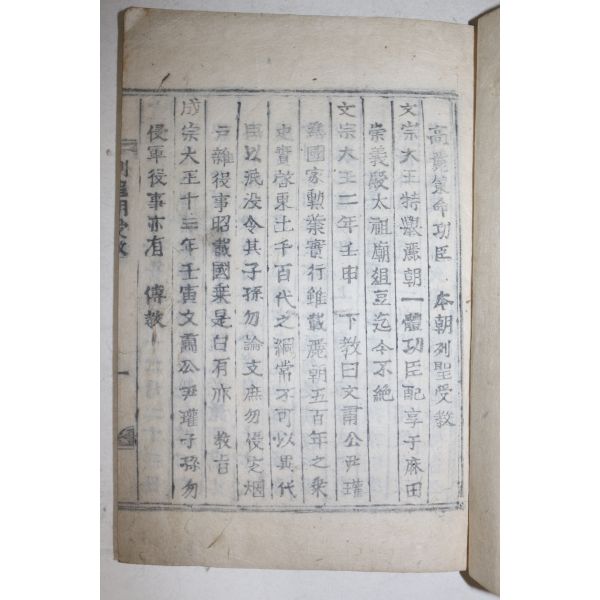 高麗策命功臣 本朝列聖受教
文宗大王特選麗朝一體功臣配享于麻田
崇義殿太祖廟俎豆迄今不絶
文宗大王二年壬申 下教曰文肅公尹瓘
爲國家勳業實行雖載麗朝五百年之乘
史實啓東土千百代之綱常不可以異代
焉以泯没令其子孫勿論支庶勿侵定烟
戶雜役事昭載國乘是白有亦 教旨
成宗大王十三年壬寅文肅公尹瓘子孫勿
侵軍役事亦有 傳教
列聖朝受教
一